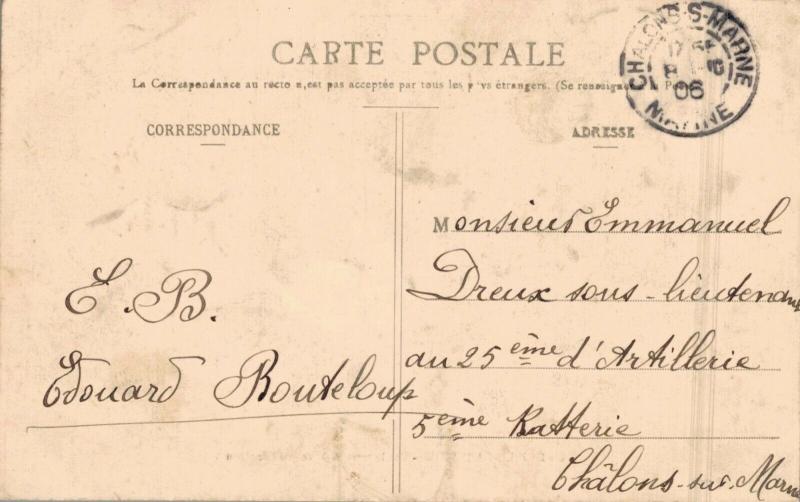 CARTE POSTALE
La Correspondance au recto n'est pas acceptée par tous les pays étrangers. (Se renseigner à la Poste)
CORRESPONDANCE
ADRESSE
CHALONS-S-MARNE
06
MARNE
E. B.
Edouard Bouteloup
Monsieur Emmanuel
Dreux sous-lieutenant
au 25ème d'Artillerie
5ème Batterie
Châlons-sur-Marne